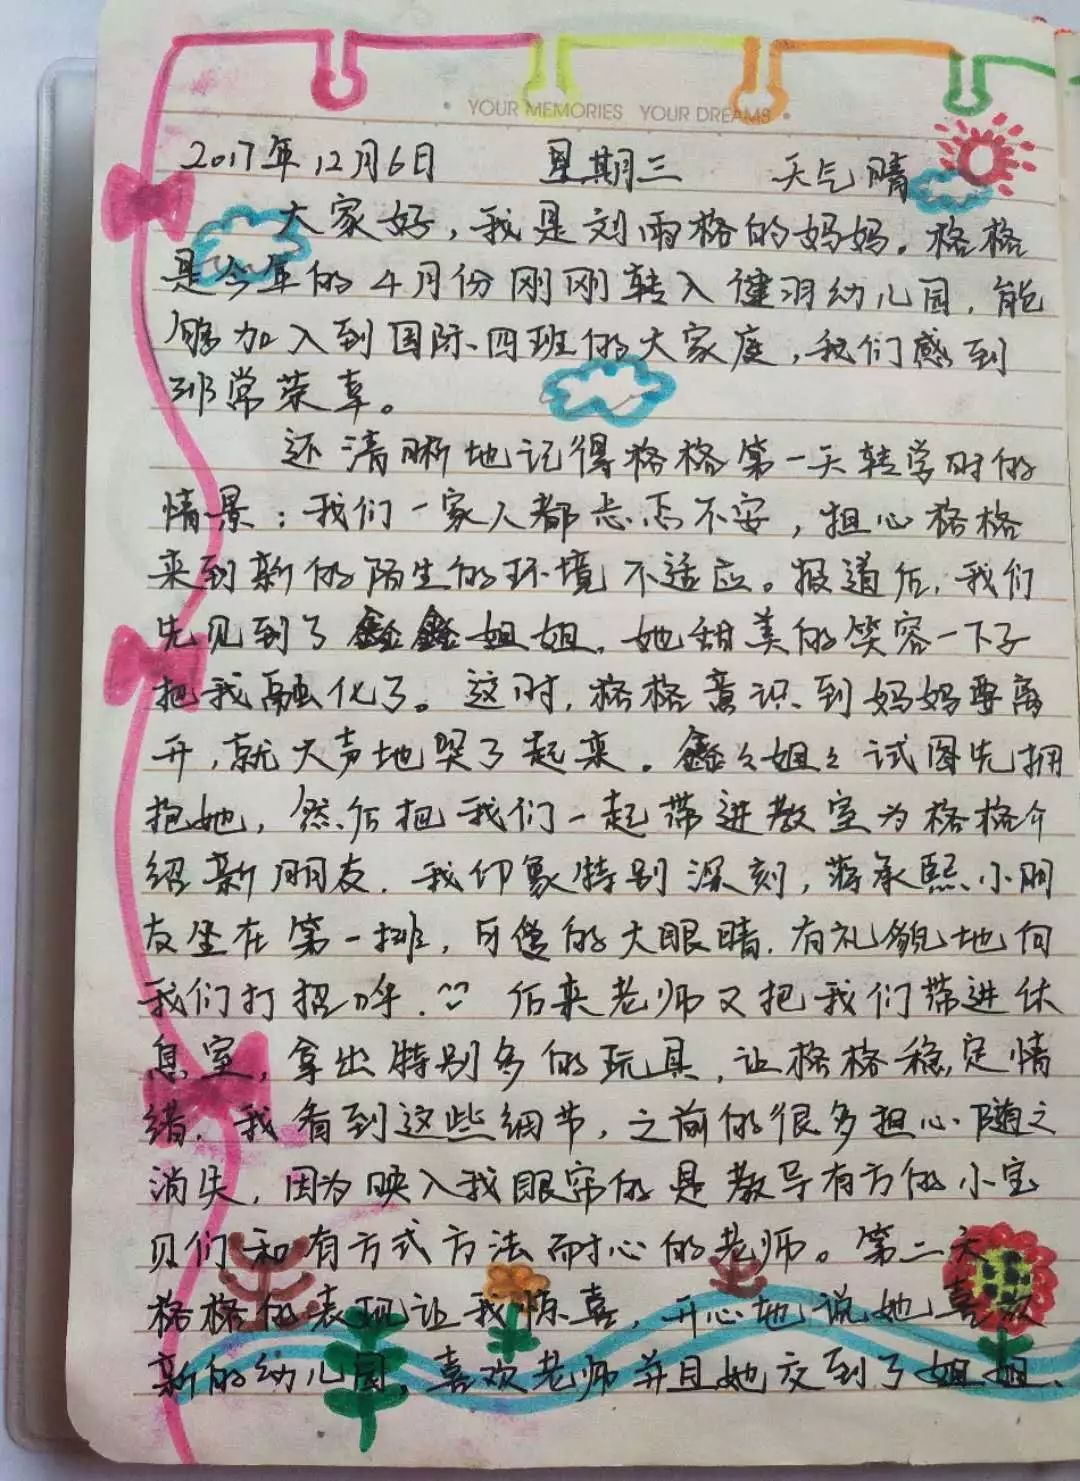 YOUR MEMORIES YOUR DREAMS
2017年12月6日 星期三 天气晴
大家好，我是刘雨格的妈妈。格格
是今年的4月份刚刚转入健羽幼儿园，能
够加入到国际四班的大家庭，我们感到
非常荣幸。
还清晰地记得格格第一天转学时的
情景：我们一家人都忐忑不安，担心格格
来到新的陌生的环境不适应。报道后，我们
先见到了鑫鑫姐姐，她甜美的笑容一下子
把我融化了。这时，格格意识到妈妈要离
开，就大声地哭了起来。鑫々姐々试图先拥
抱她，然后把我们一起带进教室为格格介
绍新朋友。我印象特别深刻，蒋承熙小朋
友坐在第一排，的大眼睛，有礼貌地向
我们打招呼。后来老师又把我们带进休
息室，拿出特别多的玩具，让格格稳定情
绪。我看到这些细节，之前的很多担心随之
消失，因为映入我眼帘的是教导有方的小宝
贝们和有方式方法耐心的老师。第二天
格格的表现让我惊喜，开心地说她喜欢
新的幼儿园，喜欢老师并且她交到了姐姐、